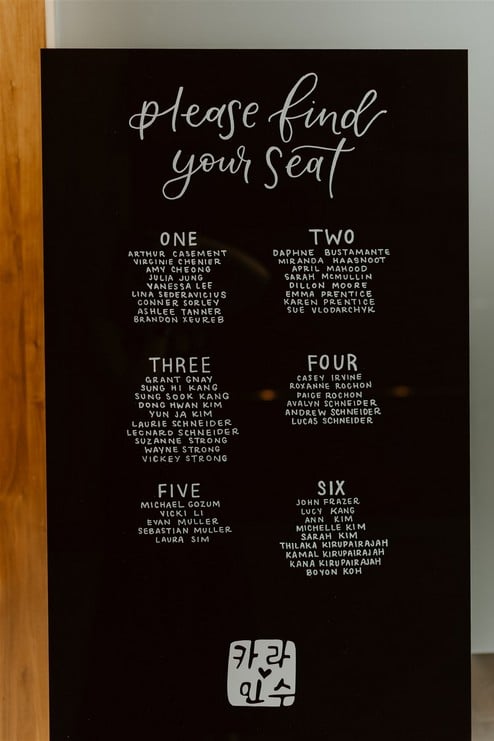 please find
your seat
ONE
ARTHUR CASEMENT
VIRGINIE CHENIER
AMY CHEONG
JULIA JUNG
VANESSA LEE
LINA SEDERAVICIUS
CONNER SORLEY
ASHLEE TANNER
BRANDON XEUREB
TWO
DAPHNE BUSTAMANTE
MIRANDA HAASNOOT
APRIL MAHOOD
SARAH MCMULLIN
DILLON MOORE
EMMA PRENTICE
KAREN PRENTICE
SUE VLODARCHYK
THREE
GRANT GNAY
SUNG HI KANG
SUNG SOOK KANG
DONG HWAN KIM
YUN JA KIM
LAURIE SCHNEIDER
LEONARD SCHNEIDER
SUZANNE STRONG
WAYNE STRONG
VICKEY STRONG
FOUR
CASEY IRVINE
ROXANNE ROCHON
PAIGE ROCHON
AVALYN SCHNEIDER
ANDREW SCHNEIDER
LUCAS SCHNEIDER
FIVE
MICHAEL GOZUM
VICKI LI
EVAN MULLER
SEBASTIAN MULLER
LAURA SIM
SIX
JOHN FRAZER
LUCY KANG
ANN KIM
MICHELLE KIM
SARAH KIM
THILAKA KIRUPAIRAJAH
KAMAL KIRUPAIRAJAH
KANA KIRUPAIRAJAH
BOYON KOH
카라
인수